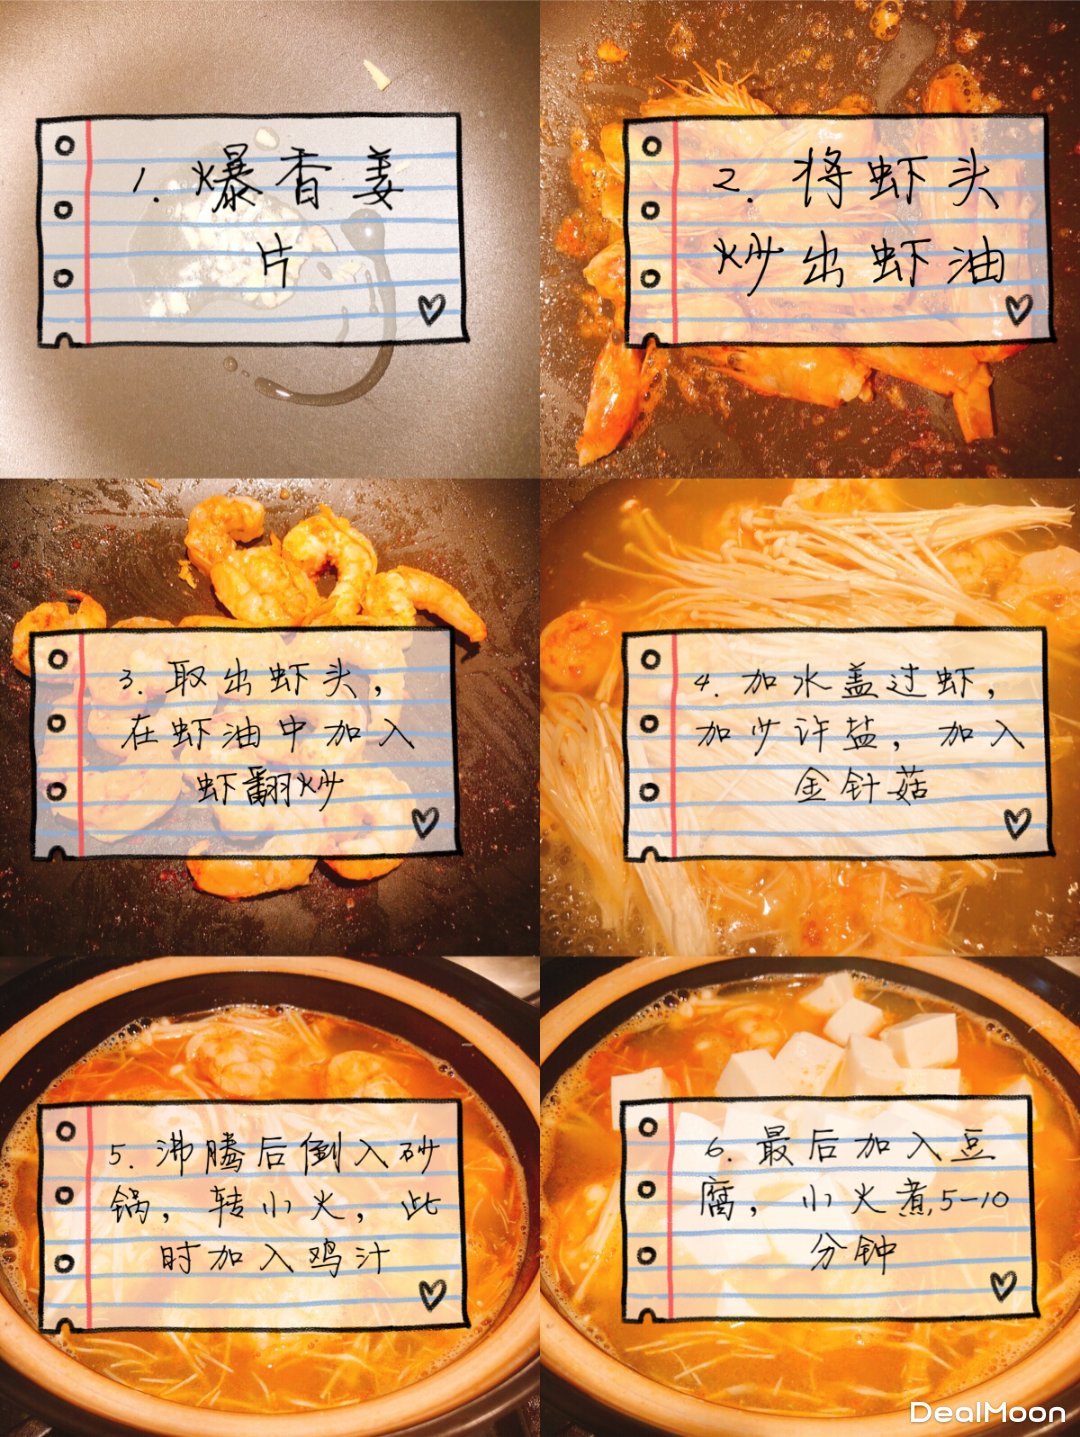 1. 爆香姜
片
2. 将虾头
炒出虾油
3. 取出虾头，
在虾油中加入
虾翻炒
4. 加水盖过虾，
加少许盐，加入
金针菇
5. 沸腾后倒入砂
锅，转小火，此
时加入鸡汁
6. 最后加入豆
腐，小火煮，5-10
分钟
DealMoon